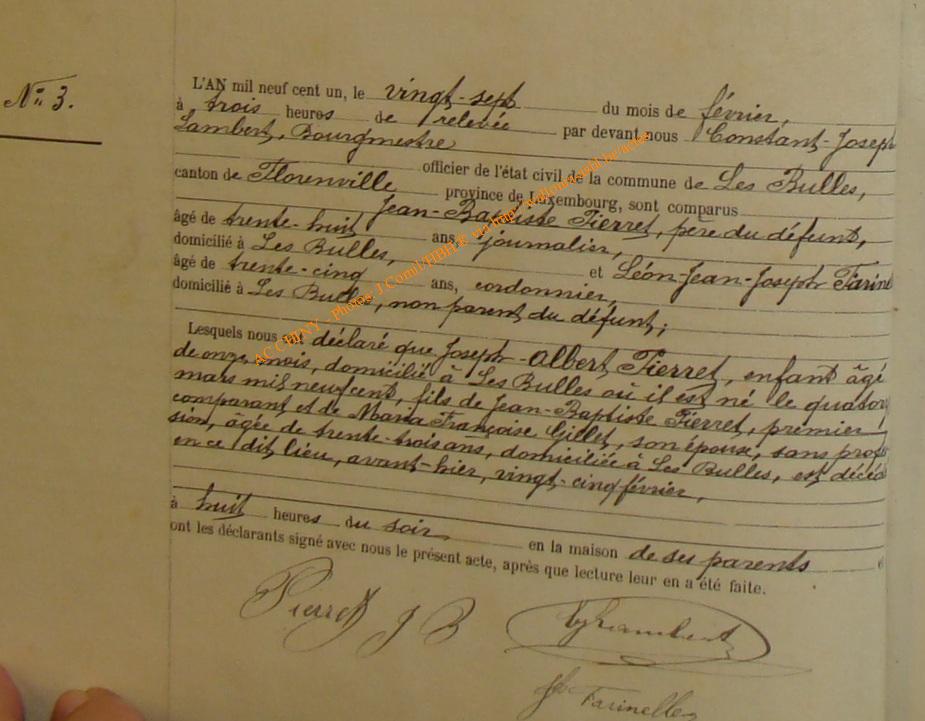 N° 3.
L'AN mil neuf cent un, le vingt-sept du mois de février,
à trois heures de relevée par devant nous Constant-Joseph
Lambert, Bourgmestre
officier de l'état civil de la commune de Les Bulles,
canton de Florenville province de Luxembourg, sont comparus
Jean-Baptiste Pierret, père du défunt,
âgé de trente-huit ans, journalier,
domicilié à Les Bulles, et Léon-Jean-Joseph Farinel
âgé de trente-cinq ans, cordonnier,
domicilié à Les Bulles, non parent du défunt;
Lesquels nous ont déclaré que Joseph-Albert Pierret, enfant âgé
de onze mois, domicilié à Les Bulles où il est né le quatorz
mars mil neuf cent, fils de Jean-Baptiste Pierret, premier
comparant et de Maria Françoise Gillet, son épouse, sans profes
sion, âgée de trente-trois ans, domiciliée à Les Bulles, est décéd
en ce dit lieu, avant-hier, vingt-cinq février,
à huit heures du soir en la maison de ses parents e
ont les déclarants signé avec nous le présent acte, après que lecture leur en a été faite.
Pierret J B
Lambert
Farinelle
AC CHINY - Photos J Comil/HBH